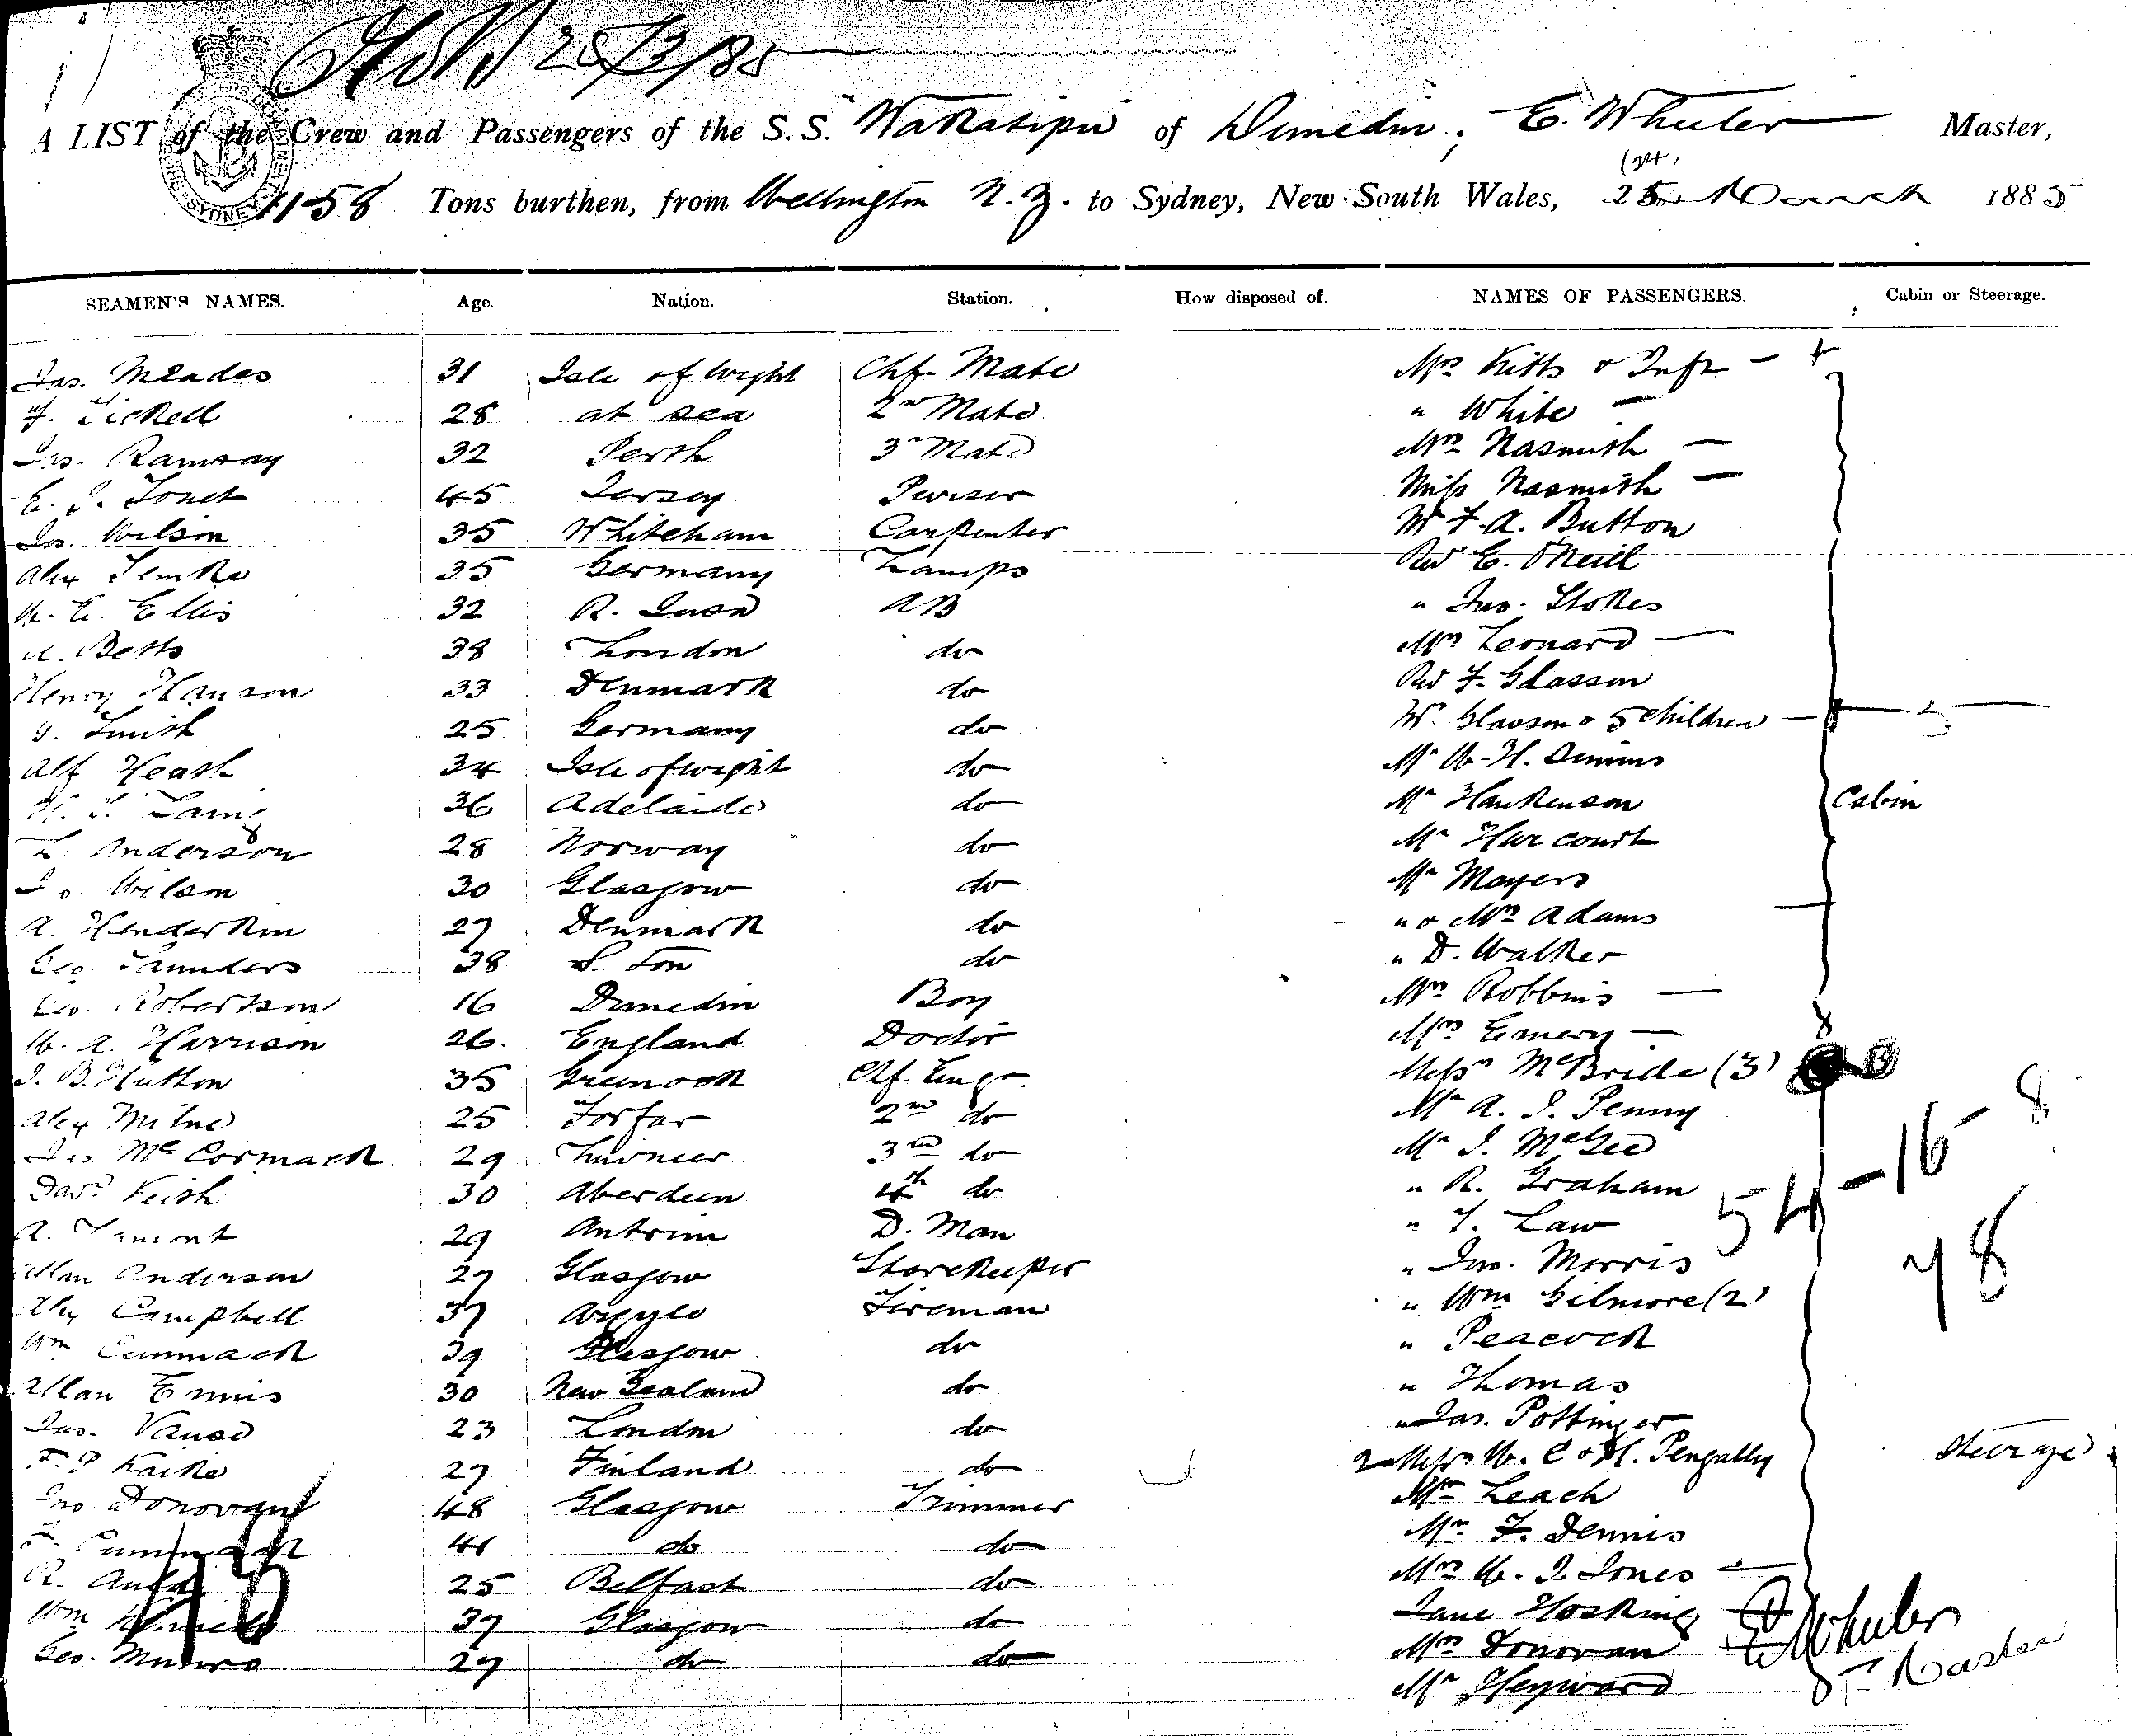 25/3/85
A LIST of the Crew and Passengers of the S.S. "Wakatipu" of Dunedin, E. Wheeler Master,
1158 Tons burthen, from Wellington N.Z. to Sydney, New South Wales, 25 March 1885
SEAMEN'S NAMES. Age. Nation. Station. How disposed of. NAMES OF PASSENGERS. Cabin or Steerage.
Jas. Meades 31 Isle of Wight Chf. Mate Mrs Kitts & Infn
Tickell 28 at sea 2nd Mate " White
Jas. Ramsay 32 Perth 3rd Mate Mrs Nasmith
E. J. 45 Jersey Purser Miss Nasmith
Jos. Wilson 35 Whiteham Carpenter Mr F. A. Button
Alex Lemke 35 Germany Lamps Rev E. O'Neill
W. E. Ellis 32 AB " Jno. Stokes
Betts 38 London do Mrs Leonard
Henry Hanson 33 Denmark do Rev F. Glasson
Smith 25 Germany do Glasson & 5 children
Alf Heath 34 Isle of Wight do Mr W. H. Simms
Laing 36 Adelaide do Mr Hankenson Cabin
L. Anderson 28 Norway do Mr Harcourt
Jo. Wilson 30 Glasgow do Mr Mayers
A. Henderkin 27 Denmark do " & Mrs Adams
Geo. Saunders 38 S. Ton do " D. Walker
Geo. Robertson 16 Dunedin Boy Mrs Robbins
W. A. Harrison 26 England Doctor Mrs Emery
J. B. Hutton 35 Greenock Chf. Engr Messrs McBride (3)
Alex Milne 25 Forfar 2nd do Mr A. J. Penny
Jas. McCormack 29 3rd do Mr J. McGee
Davd Keith 30 Aberdeen 4th do " R. Graham
A. Lamont 29 Antrim D. Man " T. Law
Allan Anderson 27 Glasgow Storekeeper " Jno. Morris
Alex Campbell 37 Argyle Fireman " Wm Gilmore (2)
Wm Cammack 39 Glasgow do " Peacock
Allan Ennis 30 New Zealand do " Thomas
Jas. Vause 23 London do " Jas. Pottinger
Kaike 27 Finland do 2 Messrs W. C & H. Pengally Steerage
Jno. Donovan 48 Glasgow Trimmer Mr Leach
Cammack 41 do do Mr F. Dennis
R. Auld 25 Belfast do Mrs W. J. Jones
Wm 37 Glasgow do Jane Hosking
Geo. Munro 27 do do Mrs Donovan
Mr Heyward
54 - 16 - 8
78
E Wheeler
Master